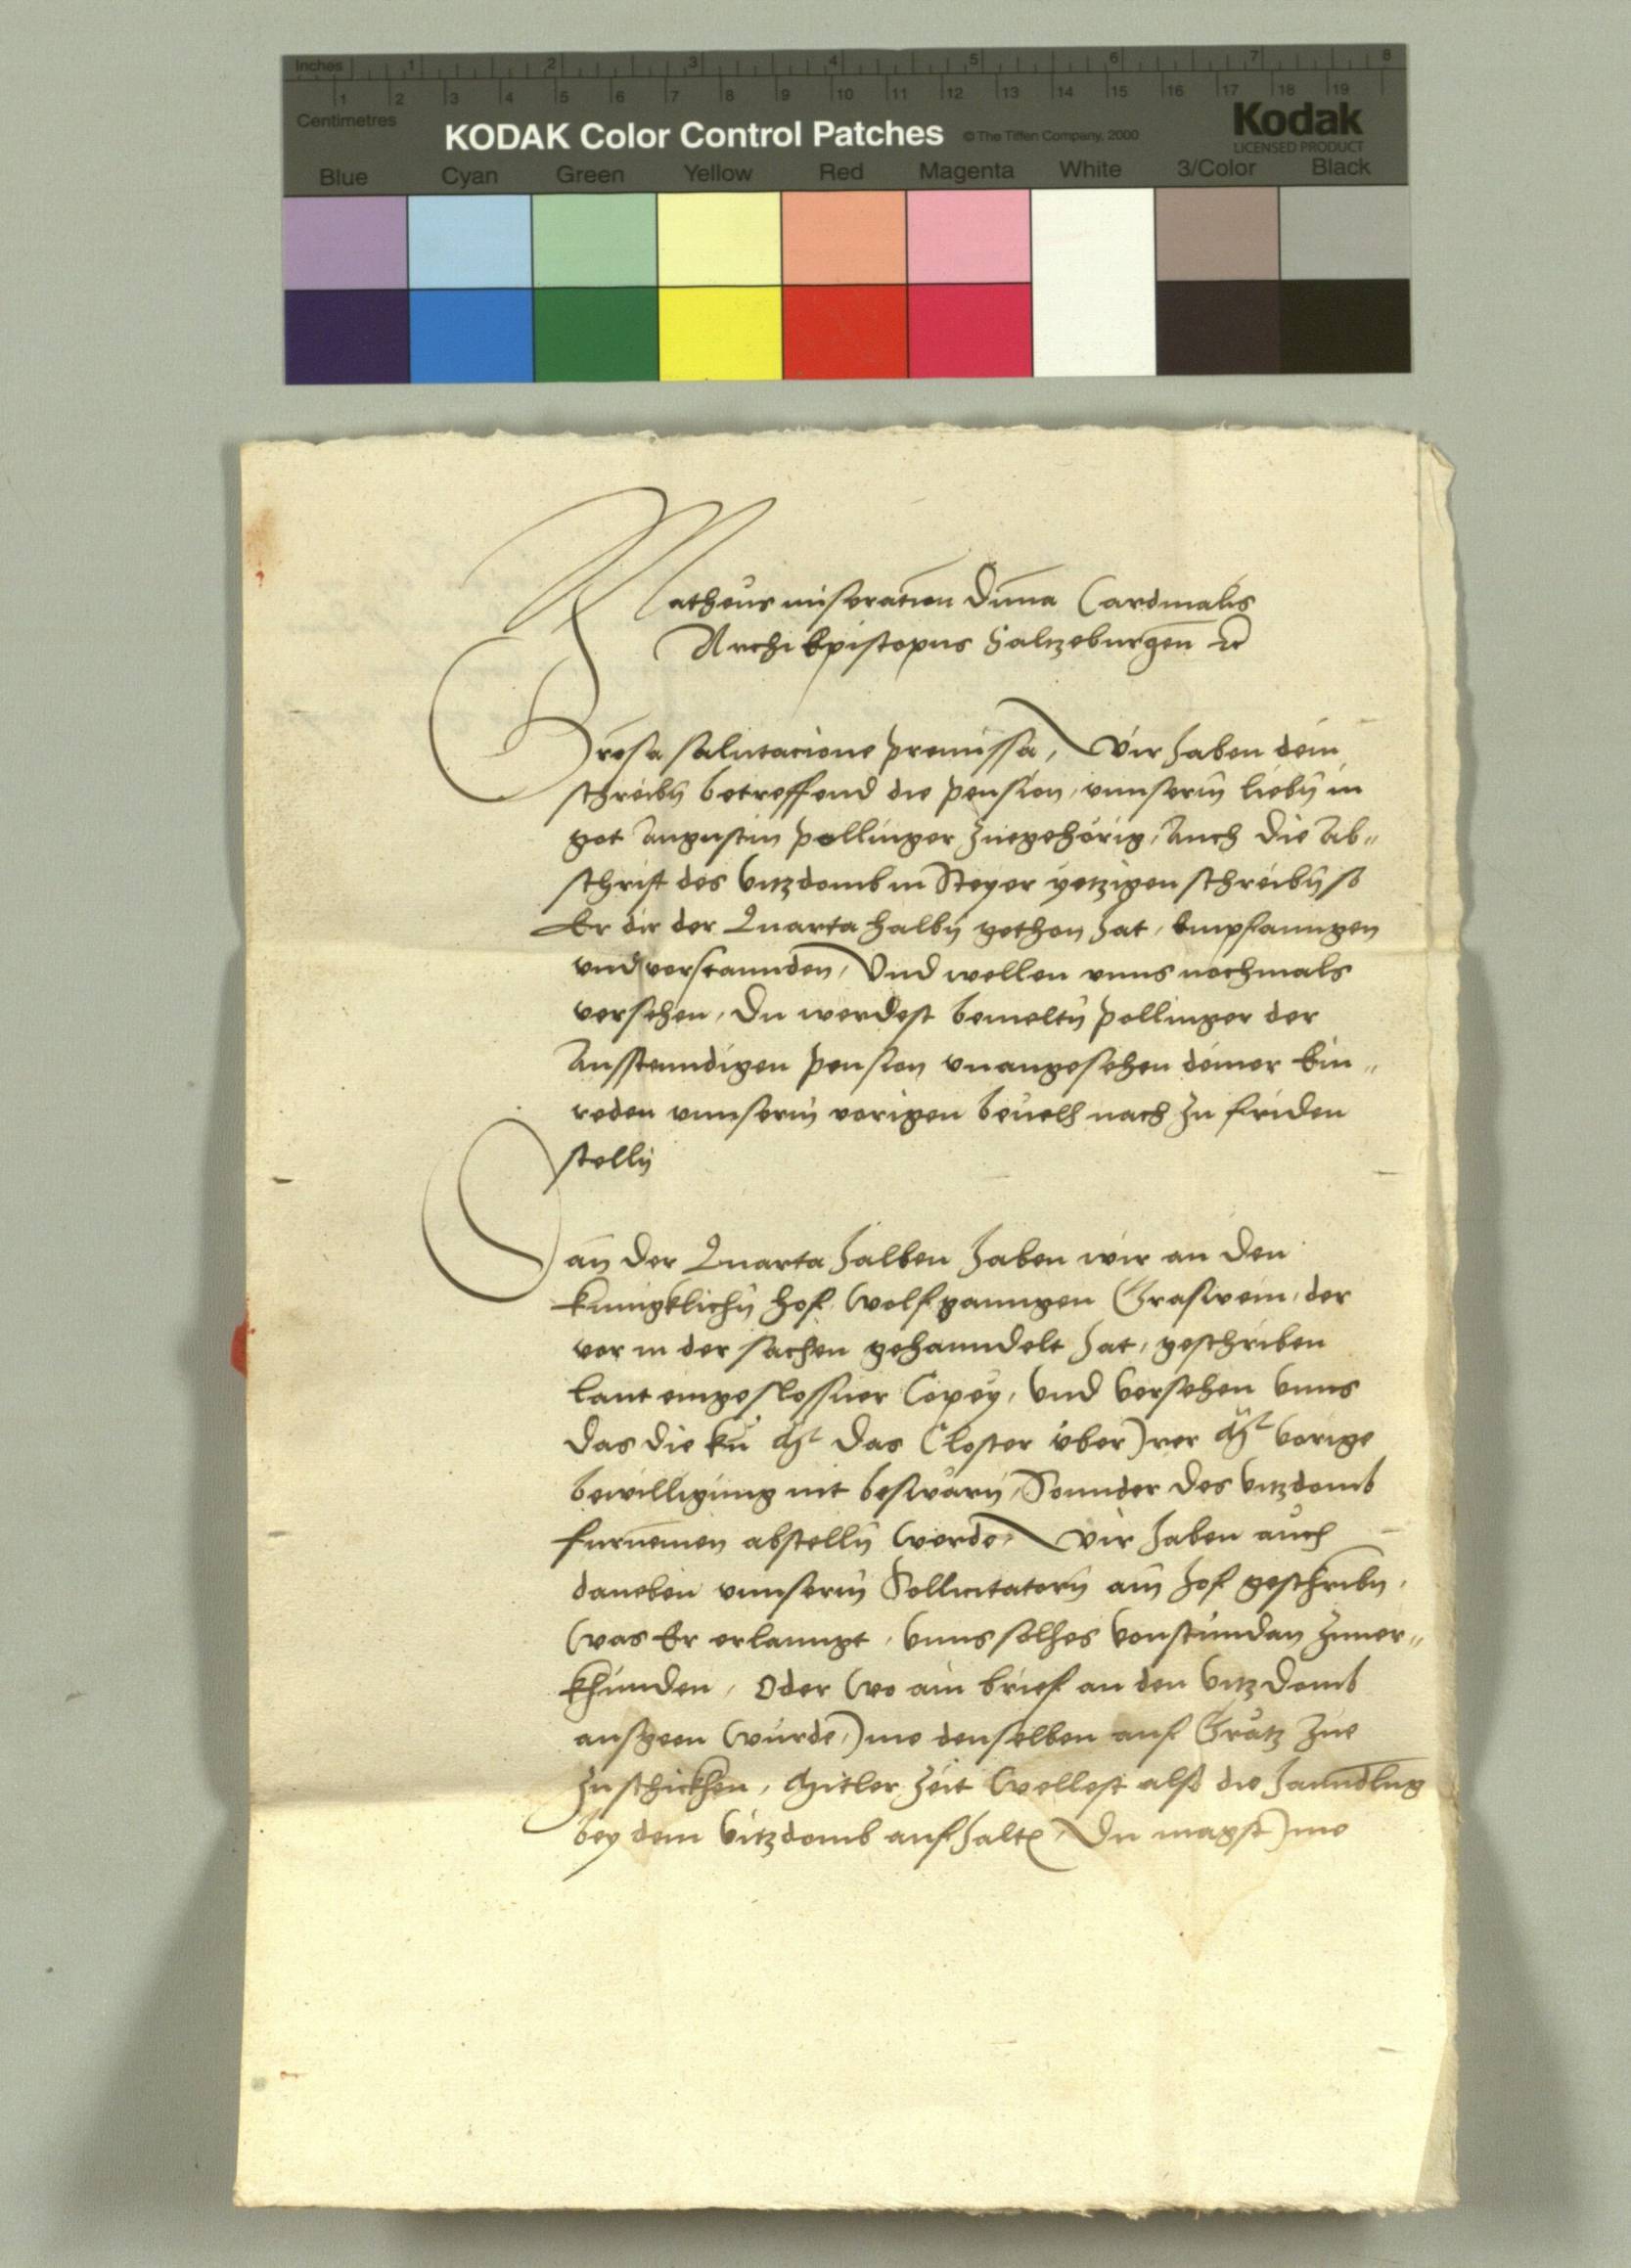 Inches 1 2 3 4 5 6 7 8
1 2 3 4 5 6 7 8 9 10 11 12 13 14 15 16 17 18 19
Centimetres
KODAK Color Control Patches © The Tiffen Company, 2000 Kodak
LICENSED PRODUCT
Blue Cyan Green Yellow Red Magenta White 3/Color Black
Matheus miseration Diuina Cardinalis
Archiepiscopus Saltzeburgen ec
salutacione premissa, Wir haben dein
schreibn betreffend die pension, vnnserm liebn in
got Augustin pollinger zuegehörig, Auch die Ab„
schrift des Vitzdomb in Steyer yetzigen schreibn so
Er dir der Quarta halbn gethon hat, Empfanngen
vnd verstannden, Vnd wellen vnns nochmals
versehen, Du werdest bemeltn pollinger der
Ausstenndigen pension vnangesehen deiner Ein„
reden vnnserm vorigen beuelh nach zu friden
stelln
Dan der Quarta halben haben wir an den
kunigklichn hof, Wolfganngen Graswein, der
vor in der sachen gehanndelt hat, geschriben
laut eingeslossner Copey, Vnd Versehen Vnns
Das die ku Mt Das Closter über Irer Mt Vorige
bewilligung nit beswärn, Sonnder des Vitzdomb
furnemen abstelln werde, Wir haben auch
daneben vnnserm Sollicitatorn am hof geschribn,
Was Er erlanngt, Vnns solhes Vonstundan zuuer„
khunden, Oder Wo ain brief an den Vitzdomb
ausgeen Wurde, Ime denselben auf Grätz zue
zu schickhen, Mitler zeit Wellest also die hanndlug
bey dem Vitzdomb aufhalten, Du magst Ime